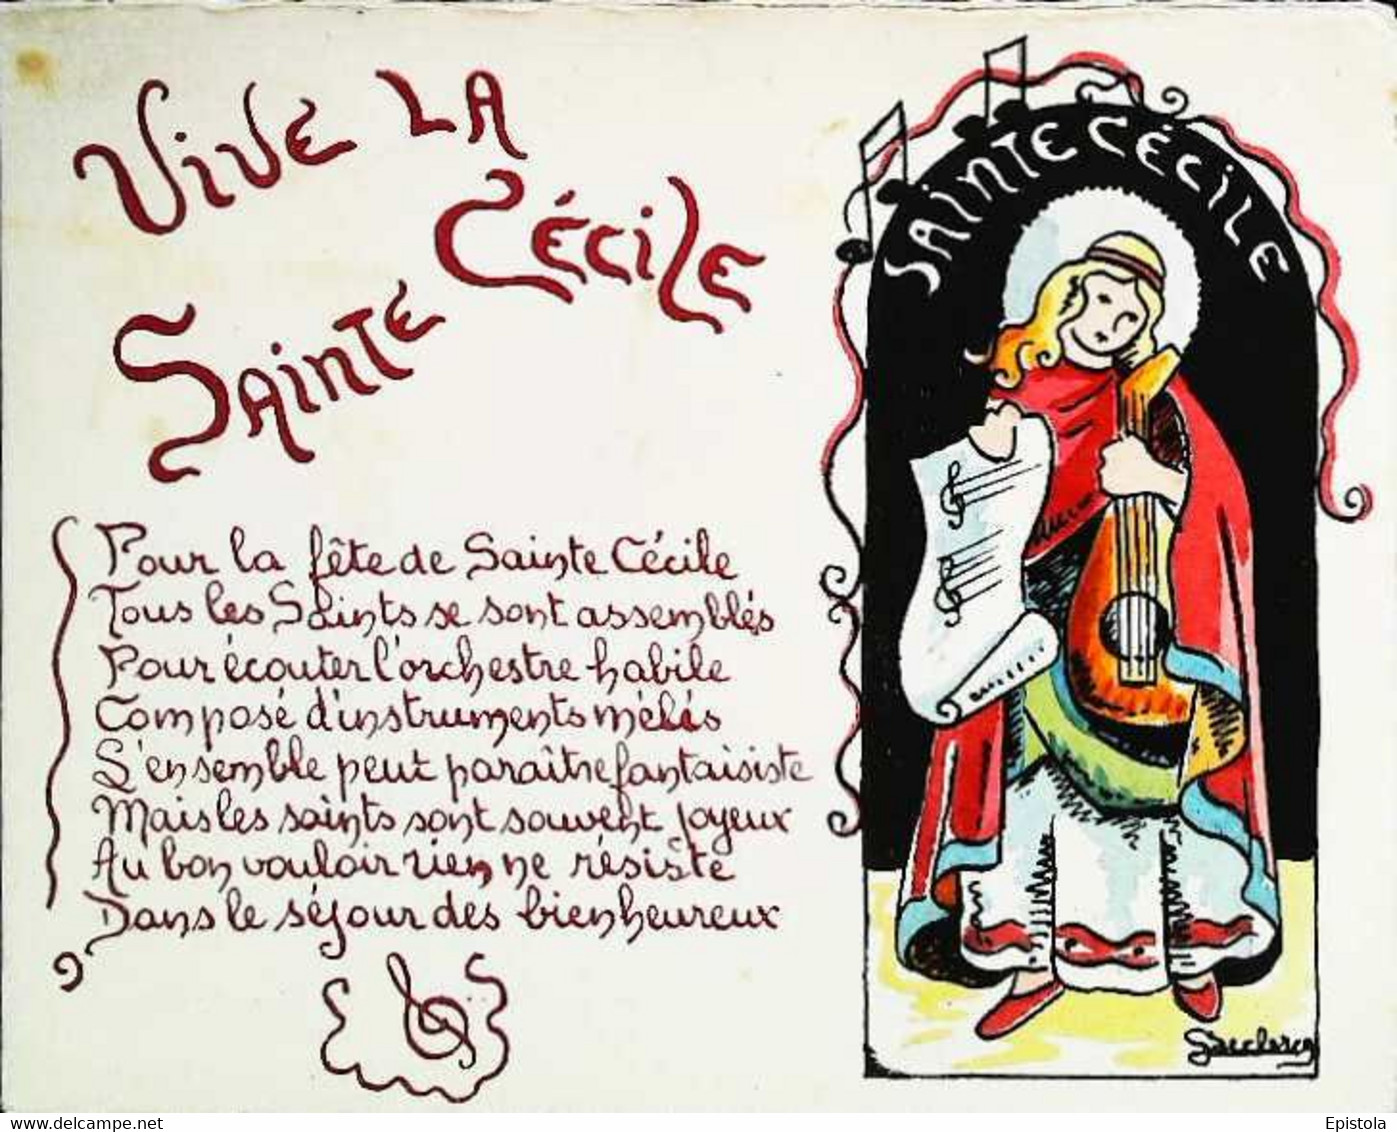 Vive LA
Sainte Cécile
Pour la fête de Sainte Cécile
Tous les Saints se sont assemblés
Pour écouter l'orchestre habile
Composé d'instruments mêlés
L'ensemble peut paraître fantaisiste
Mais les saints sont souvent joyeux
Au bon vouloir rien ne résiste
Dans le séjour des bienheureux
SAINTE CÉCILE
Leclercq
www.delcampe.net
Epistola